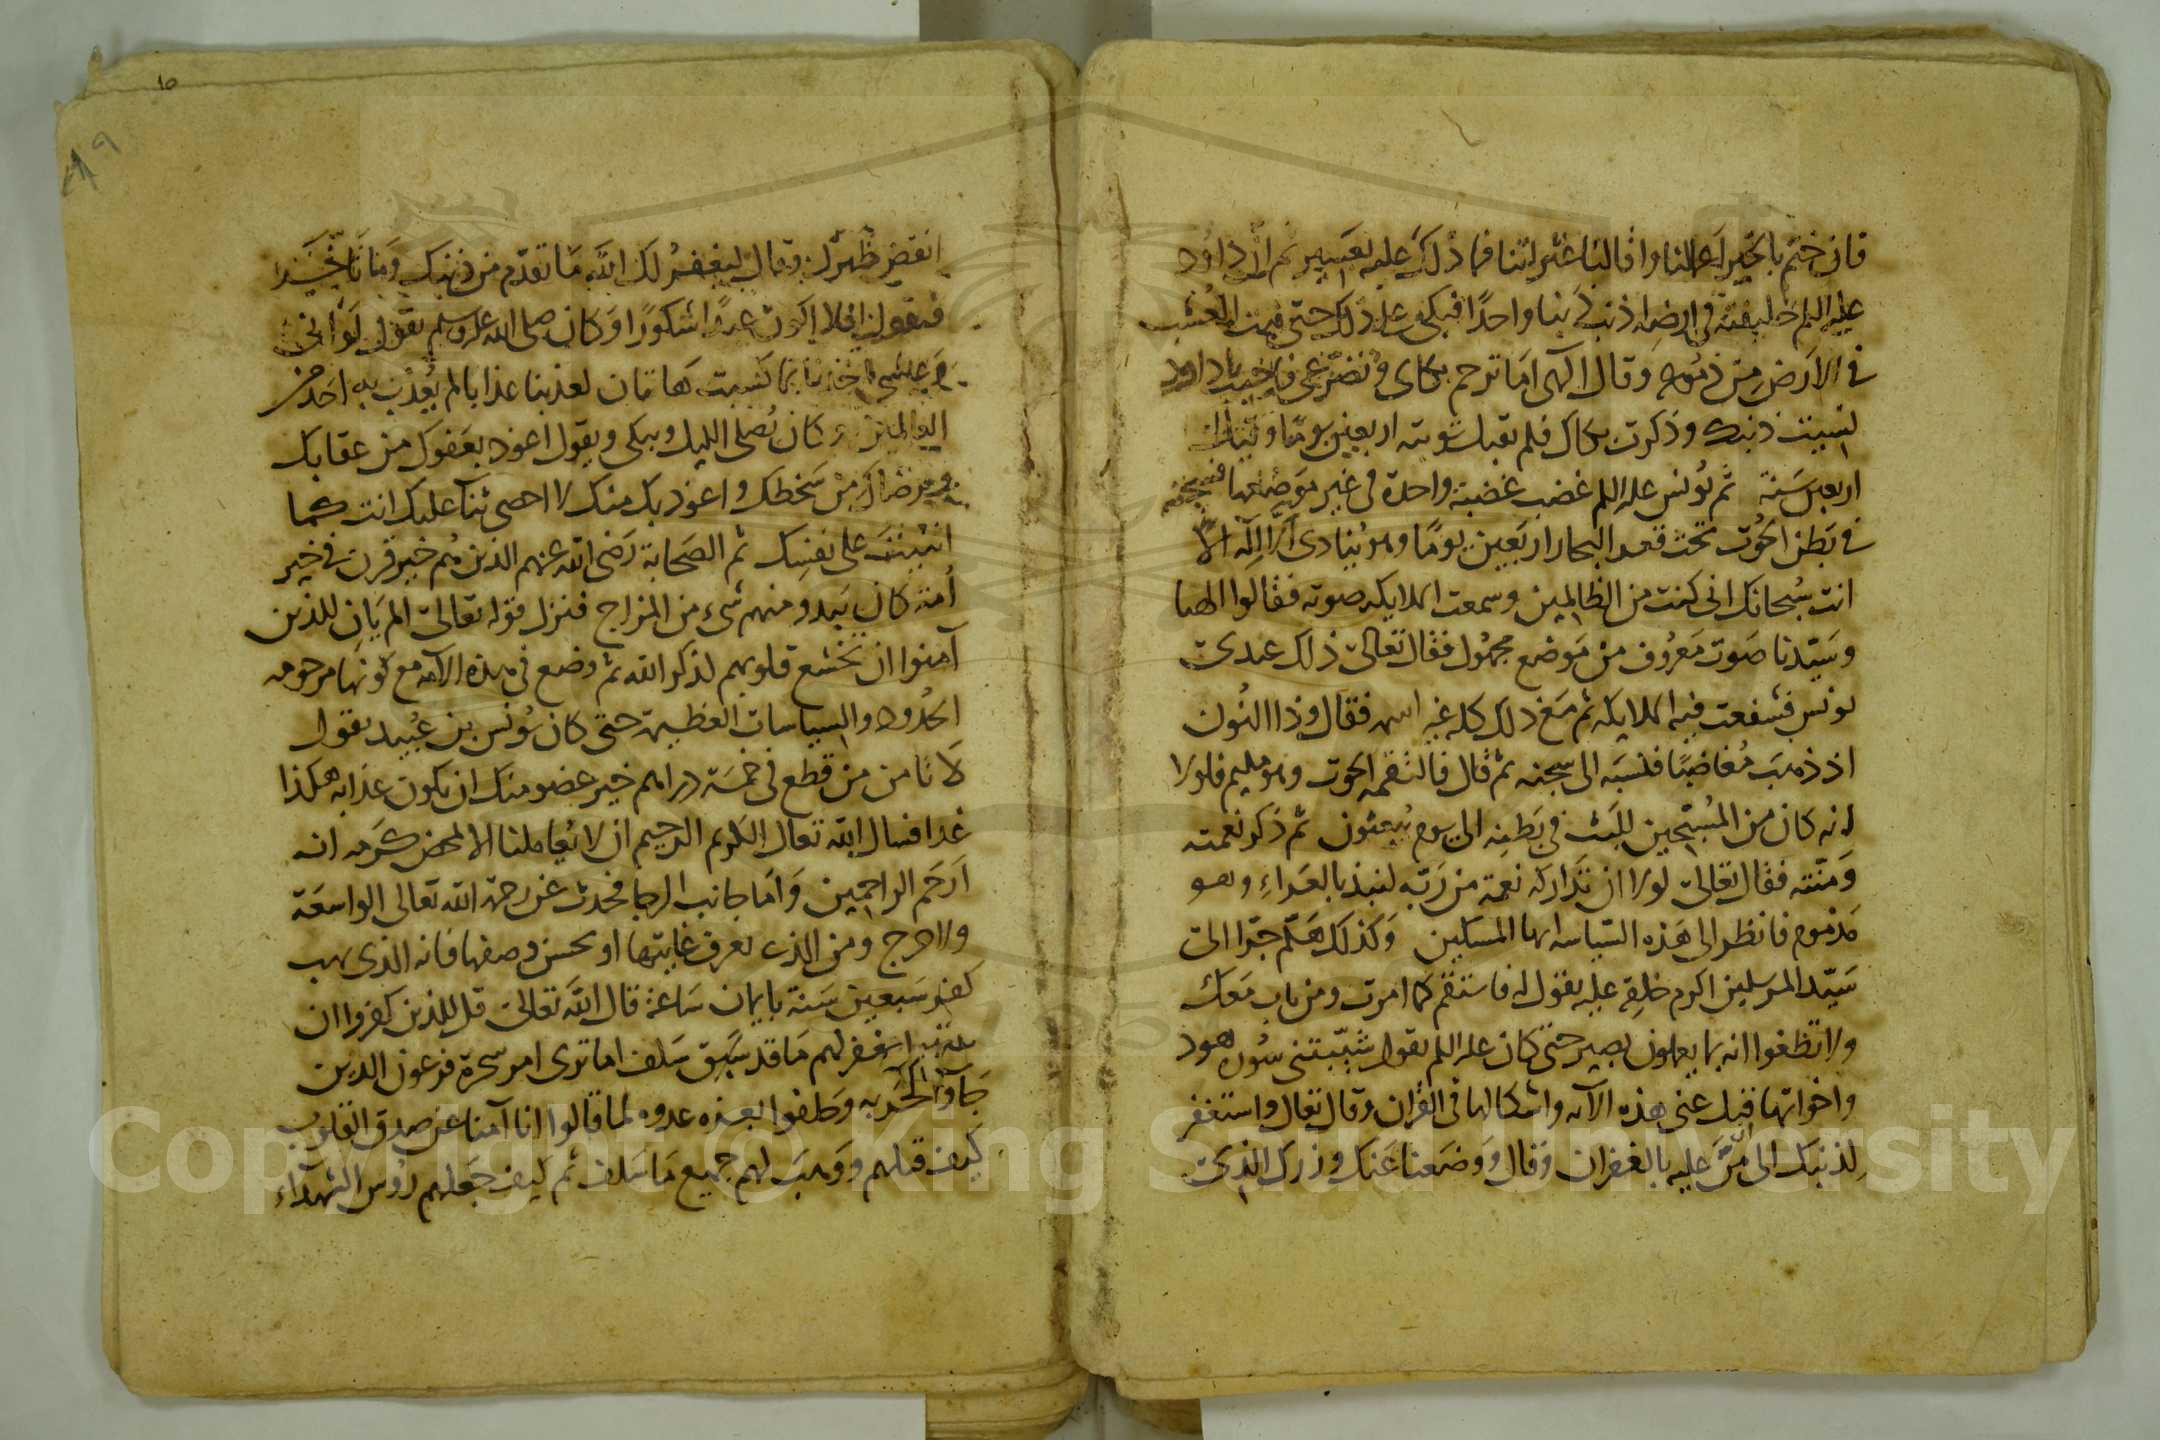 فان ختم بالخير اعمالنا واقالنا عثراتنا فما ذلك عليه بعسير ثم ان داود
عليه السلم خليفته في ارضه اذنب ذنبا واحدا فبكى على ذلك حتى نبت العُشب
في الارض من دموعه وقال الهي اما ترحم بكاي وتضرعي فاجيب يا داود
نسيت ذنبك وذكرت بكاك فلم يقبل توبته اربعين يوما وقيل
اربعين سنة ثم يونس عليه السلم غضب غضبة واحدة في غير موضعها فسجنه
في بطن الحوت تحت قعر البحار اربعين يوما وهو ينادى لا اله الا
انت سبحانك انى كنت من الظالمين وسمعت الملايكه صوته فقالوا الهنا
وسيّدنا صوت معروف من موضع مجهول فقال تعالى ذلك عبدى
يونس فشفعت فيه الملايكه ثم مع ذلك كله غير اسمه فقال وذا النون
اذ ذهب مُغاضبًا فنسبه الى سجنه ثم قال فالتقمه الحوت وهو مليم فلولا
انه كان من المُسبّحين للبث في بطنه الى يوم يُبعثون ثم ذكر نعمته
ومنّته فقال تعالى لولا ان تداركه نعمة من ربّه لنبذ بالعراء وهو
مذموم فانظر الى هذه السياسه ايها المسكين وكذلك هلمّ جرّا الى
سيّد المرسلين اكرم خلقه عليه يقول له فاستقم كما امرت ومن تاب معك
ولا تطغوا انه بما يعملون بصير حتى كان عليه السلم يقول شيّبتنى سُوره هود
واخواتها قيل عنى هذه الآيه واشكالها في القران وقال تعالى واستغفر
لذنبك الى ان منّ عليه بالغفران وقال ووضعنا عنك وزرك الذى
١٥
١٩
انقض ظهرك وقال ليغفر لك الله ما تقدّم من ذنبك وما تأخّر
فيقول افلا اكون عبدًا شكورًا وكان صلى الله عليه وسلم يقول لو انى
وعيسى اخذنا بما كسبت هاتان لعذبنا عذابا لم يُعذّب به احد من
العالمين وكان يُصلى الليل ويبكى ويقول اعوذ بعفوك من عقابك
وبرضاك من سخطك واعوذ بك منك لا احصى ثناً عليك انت كما
اثنيت على نفسك ثم الصحابة رضى الله عنهم الذين هُم خير قرن في خير
أمة كان يبدو منهم شىء من المزاح فنزل قوله تعالى الم يأن للذين
آمنوا ان تخشع قلوبهم لذكر الله ثم وضع في هذه الامه مع كونها مرحومه
الحدود والسياسات العظيمة حتى كان يُونس بن عُبيد يقول
لا تأمن من قطع في خمسة دراهم خير عضو منك ان يكون عذابه هكذا
غدا فنسال الله تعالى الكريم الرحيم ان لا يُعاملنا الا لمحض كرمه انه
ارحم الراحمين واما جانب الرجا فحدث عن رحمة الله تعالى الواسعة
ولا حرج ومن الذى يعرف غايتها او يحسن وصفها فانه الذى يهب
كفر سبعين سنة بايمان ساعة قال الله تعالى قل للذين كفروا ان
ينتهوا يغفر لهم ما قد سبق سلف اما ترى امر سحرة فرعون الذين
جاؤا لحربه وحلفوا بعزه عدوه لما قالوا انا آمنا عن صدق القلوب
كيف قبلهم ووهب لهم جميع ما سلف ثم كيف جعلهم رؤس الشهداء
Copyright © King Saud University